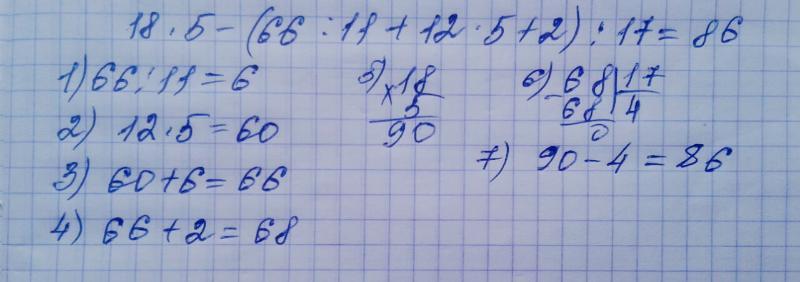 18 · 5 - (66 : 11 + 12 · 5 + 2) : 17 = 86
1) 66 : 11 = 6
2) 12 · 5 = 60
3) 60 + 6 = 66
4) 66 + 2 = 68
5) × 18
5
90
6) - 68 | 17
68 | 4
0
7) 90 - 4 = 86